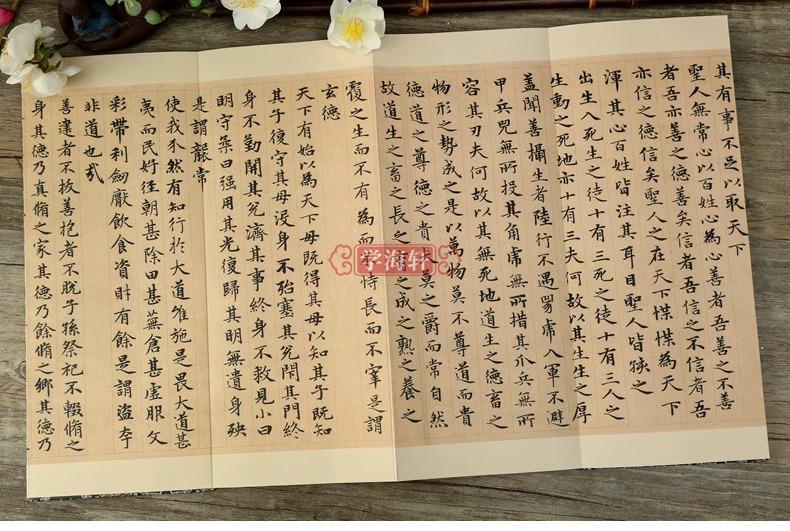 其有事不足以取天下
聖人無常心以百姓心為心善者吾善之不善
者吾亦善之德善矣信者吾信之不信者吾
亦信之德信矣聖人之在天下惵惵為天下
渾其心百姓皆注其耳目聖人皆孩之
出生入死生之徒十有三死之徒十有三人之
生動之死地亦十有三夫何故以其生生之厚
蓋聞善攝生者陸行不遇兕虎入軍不避
甲兵兕無所投其角虎無所措其爪兵無所
容其刃夫何故以其無死地道生之德畜之
物形之勢成之是以萬物莫不尊道而貴
德道之尊德之貴夫莫之爵而常自然
故道生之畜之長之育之成之熟之養之
覆之生而不有為而不恃長而不宰是謂
玄德
天下有始以為天下母既得其母以知其子既知
其子復守其母没身不殆塞其兌閉其門終
身不勤開其兌濟其事終身不救見小曰
明守柔曰强用其光復歸其明無遺身殃
是謂襲常
使我介然有知行於大道唯施是畏大道甚
夷而民好徑朝甚除田甚蕪倉甚虛服文
彩帶利劒厭飲食資財有餘是謂盜夸
非道也哉
善建者不拔善抱者不脫子孫祭祀不輟脩之
身其德乃真脩之家其德乃餘脩之鄉其德乃
学海轩